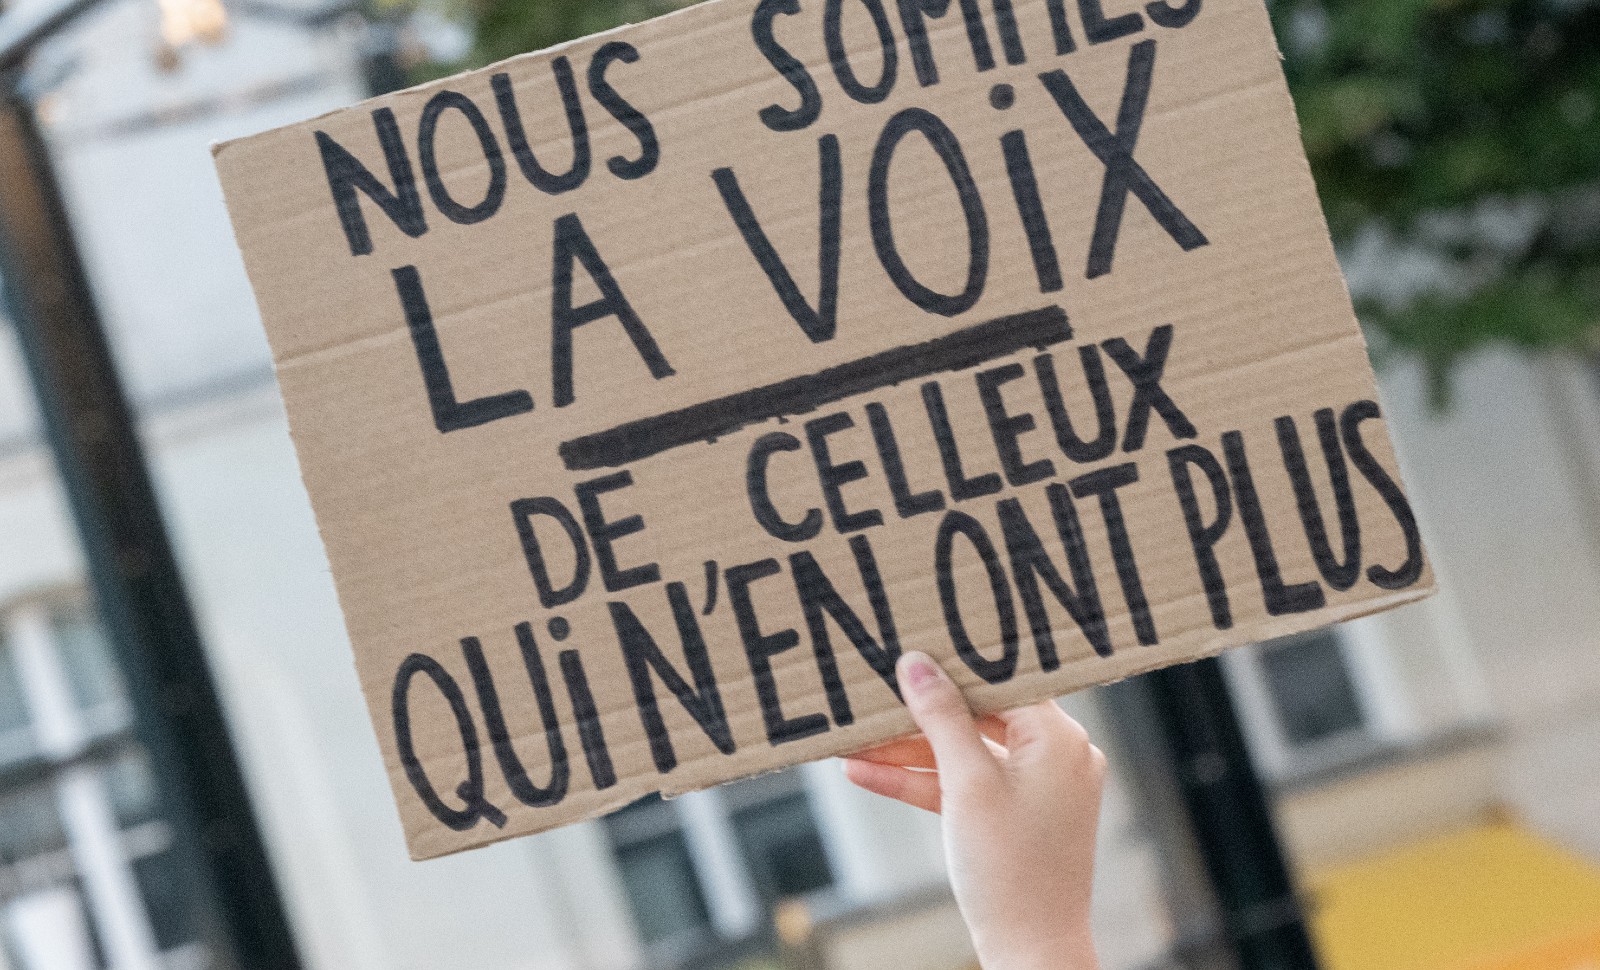 NOUS SOMMES
LA VOiX
DE CELLEUX
QUi N'EN ONT PLUS